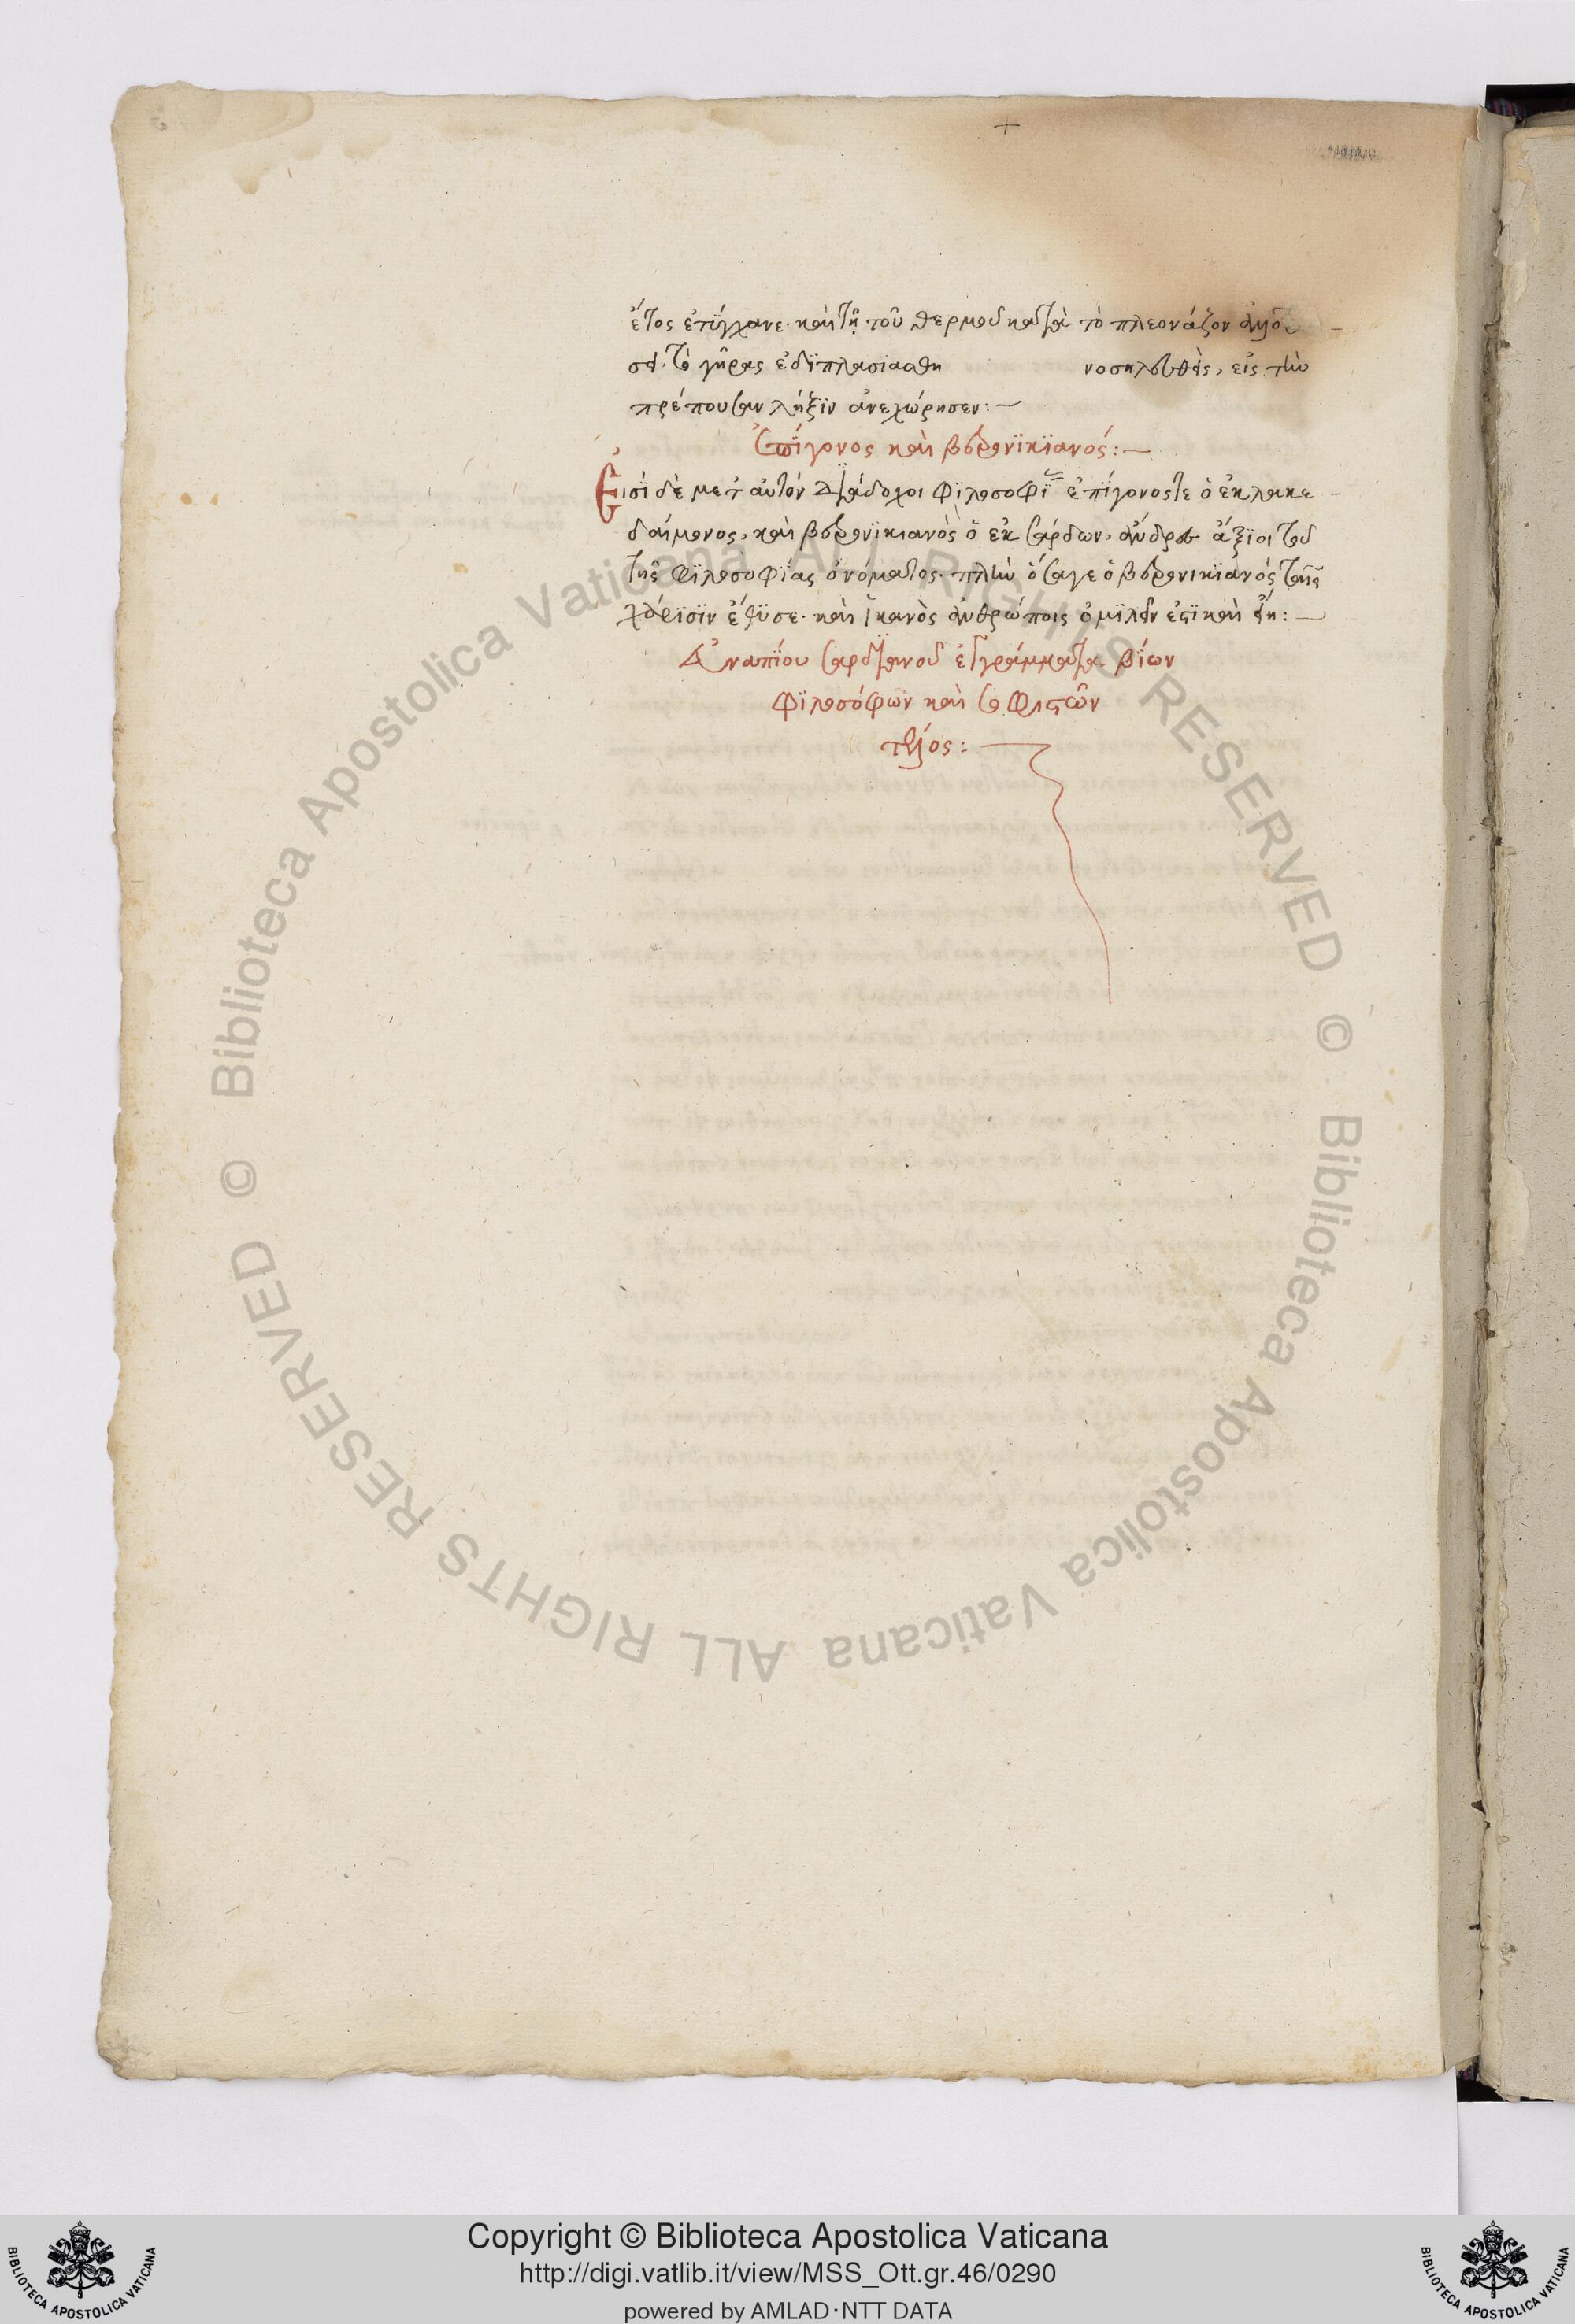 ἔτος ἐτύγχανε. καὶ τῇ τοῦ θερμοῦ κατὰ τὸ πλεονάζον
τὸ γῆρας ἐδιπλασιάσθη νοσηλευθεὶς, εἰς τὴν
πρέπουσαν λῆξιν ἀνεχώρησεν:—
Ἐπίγονος καὶ βερονικιανός:—
Εἰσὶ δὲ μετ' αὐτὸν διάδοχοι φιλοσοφί ἐπίγονός τε ὁ ἐκ λακε
δαίμονος, καὶ βερονικιανὸς ὁ ἐκ σάρδεων, ἄνδρες ἄξιοι τοῦ
τῆς φιλοσοφίας ὀνόματος. πλὴν ὅσα γε ὁ βερονικιανὸς ταῖς
χάρισιν ἔθυσε. καὶ ἱκανὸς ἀνθρώποις ὁμιλεῖν ἐστὶ καὶ εἴη:—
Εὐναπίου σαρδιανοῦ βίων
φιλοσόφων καὶ σοφιστῶν
τέλος:—
© Biblioteca Apostolica Vaticana ALL RIGHTS RESERVED © Biblioteca Apostolica Vaticana ALL RIGHTS RESERVED
BIBLIOTECA APOSTOLICA VATICANA
Copyright © Biblioteca Apostolica Vaticana
http://digi.vatlib.it/view/MSS_Ott.gr.46/0290
powered by AMLAD·NTT DATA
BIBLIOTECA APOSTOLICA VATICANA